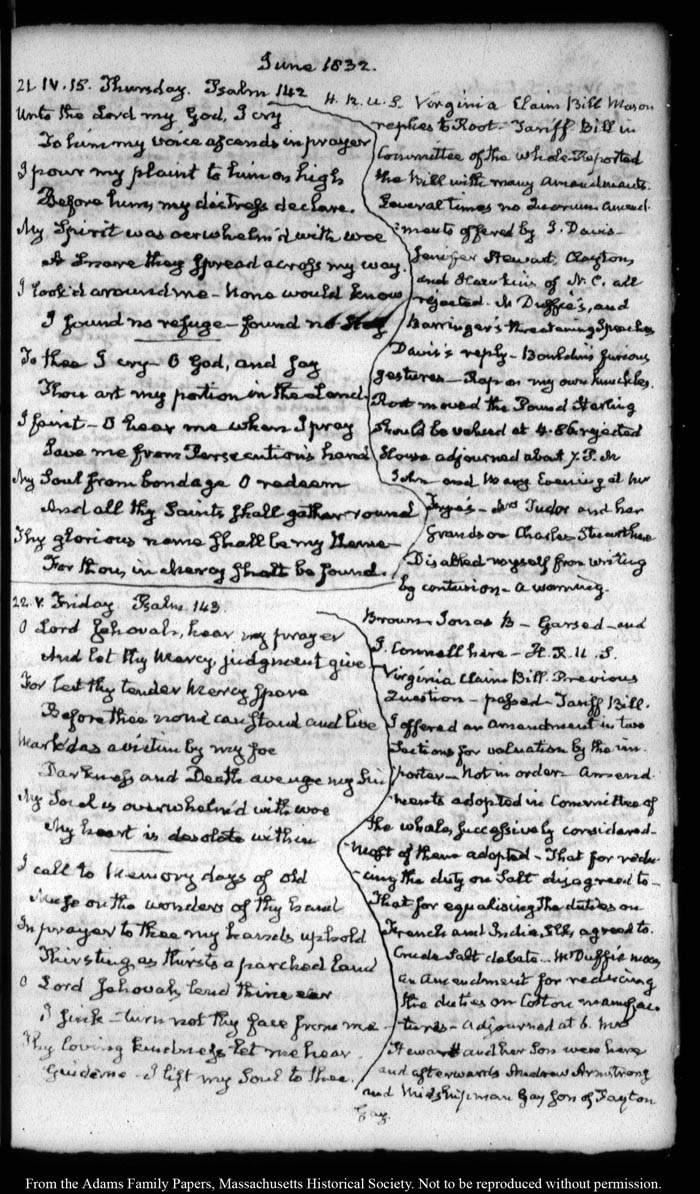 June 1832.
21. IV.15. Thursday. Psalm 142
Unto the Lord my God, I cry
To him my voice ascends in prayer
I pour my plaint to him on high
Before him, my distress declare.
My Spirit was overwhelm'd with woe
A Snare they spread across my way.
I look'd around me – None would know
I found no refuge – found no Stay
To thee I cry – O God, and say
Thou art my portion in the Land
I faint – O hear me when I pray
Save me from Persecution's hand
My Soul from bondage O redeem
And all thy Saints shall gather round
Thy glorious name shall be my theme
For thou, in Mercy shalt be found.
H. R. U. S. Virginia Claim Bill Mason
replies to Root – Tariff Bill in
Committee of the whole. Reported
the Bill with many amendments.
Several times no Quorum. Amend
ments offered by J. Davis
Jenifer Stewart, Clayton
and Hawkins of N. C. all
rejected. McDuffie's, and
Barringer's threatening Speeches
Davis's reply – Bouldin's furious
gestures – Rap on my own knuckles.
Root moved the Pound Sterling
should be valued at 4.80 rejected
House adjourned about 7. P. M
John and Mary Evening at Mr
Frye's – Mrs Tudor and her
Grandson Charles Stewart here
Disabled myself from writing
by contusion – a warning.
22. V. Friday Psalm. 143.
O Lord Jehovah, hear my prayer
And let thy Mercy, judgment give
For lest thy tender Mercy spare
Before thee none can stand and live
Mark'd as a victim by my foe
Darkness and Death avenge my Sin
My Soul is overwhelm'd with woe
My heart is desolate within
I call to Memory days of old
Muse on the wonders of thy hand
In prayer to thee my hands uphold
Thirsting as thirsts a parched land
O Lord Jehovah, lend thine ear
I sink – turn not thy face from me
Thy loving kindness let me hear
Guide me – I lift my Soul to thee.
Brown. Jonas B – Garsed – and
J. Connell here – H. R. U. S.
Virginia Claim Bill. Previous
Question – passed – Tariff Bill.
I offered an amendment in two
Sections for valuation by the im
porter – Not in order. Amend
ments adopted in Committee of
the whole, successively considered –
Most of them adopted – That for redu
cing the duty on Salt disagreed to –
That for equalising the duties on
French and India Silks, agreed to.
Crude Salt debate – McDuffie moves
an amendment for reducing
the duties on Cotton manufac
tures – adjourned at 6. Mrs
Stewart and her Son were here
and afterwards Andrew Armstrong
and Midshipman Gay son of Payton
Gay.
From the Adams Family Papers, Massachusetts Historical Society. Not to be reproduced without permission.